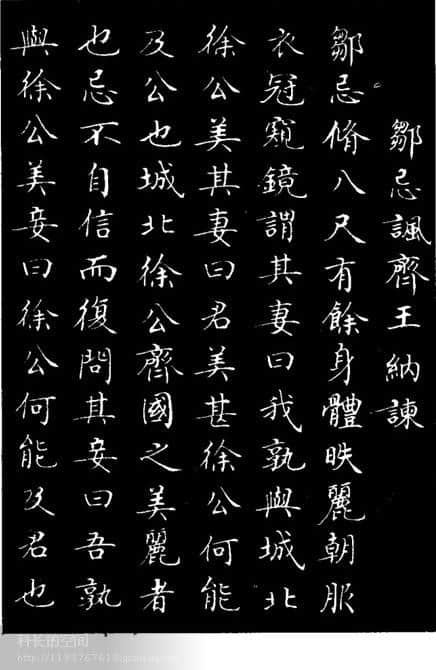 鄒忌諷齊王納諫
鄒忌脩八尺有餘身體昳麗朝服
衣冠窺鏡謂其妻曰我孰與城北
徐公美其妻曰君美甚徐公何能
及公也城北徐公齊國之美麗者
也忌不自信而復問其妾曰吾孰
與徐公美妾曰徐公何能及君也
科长的空间